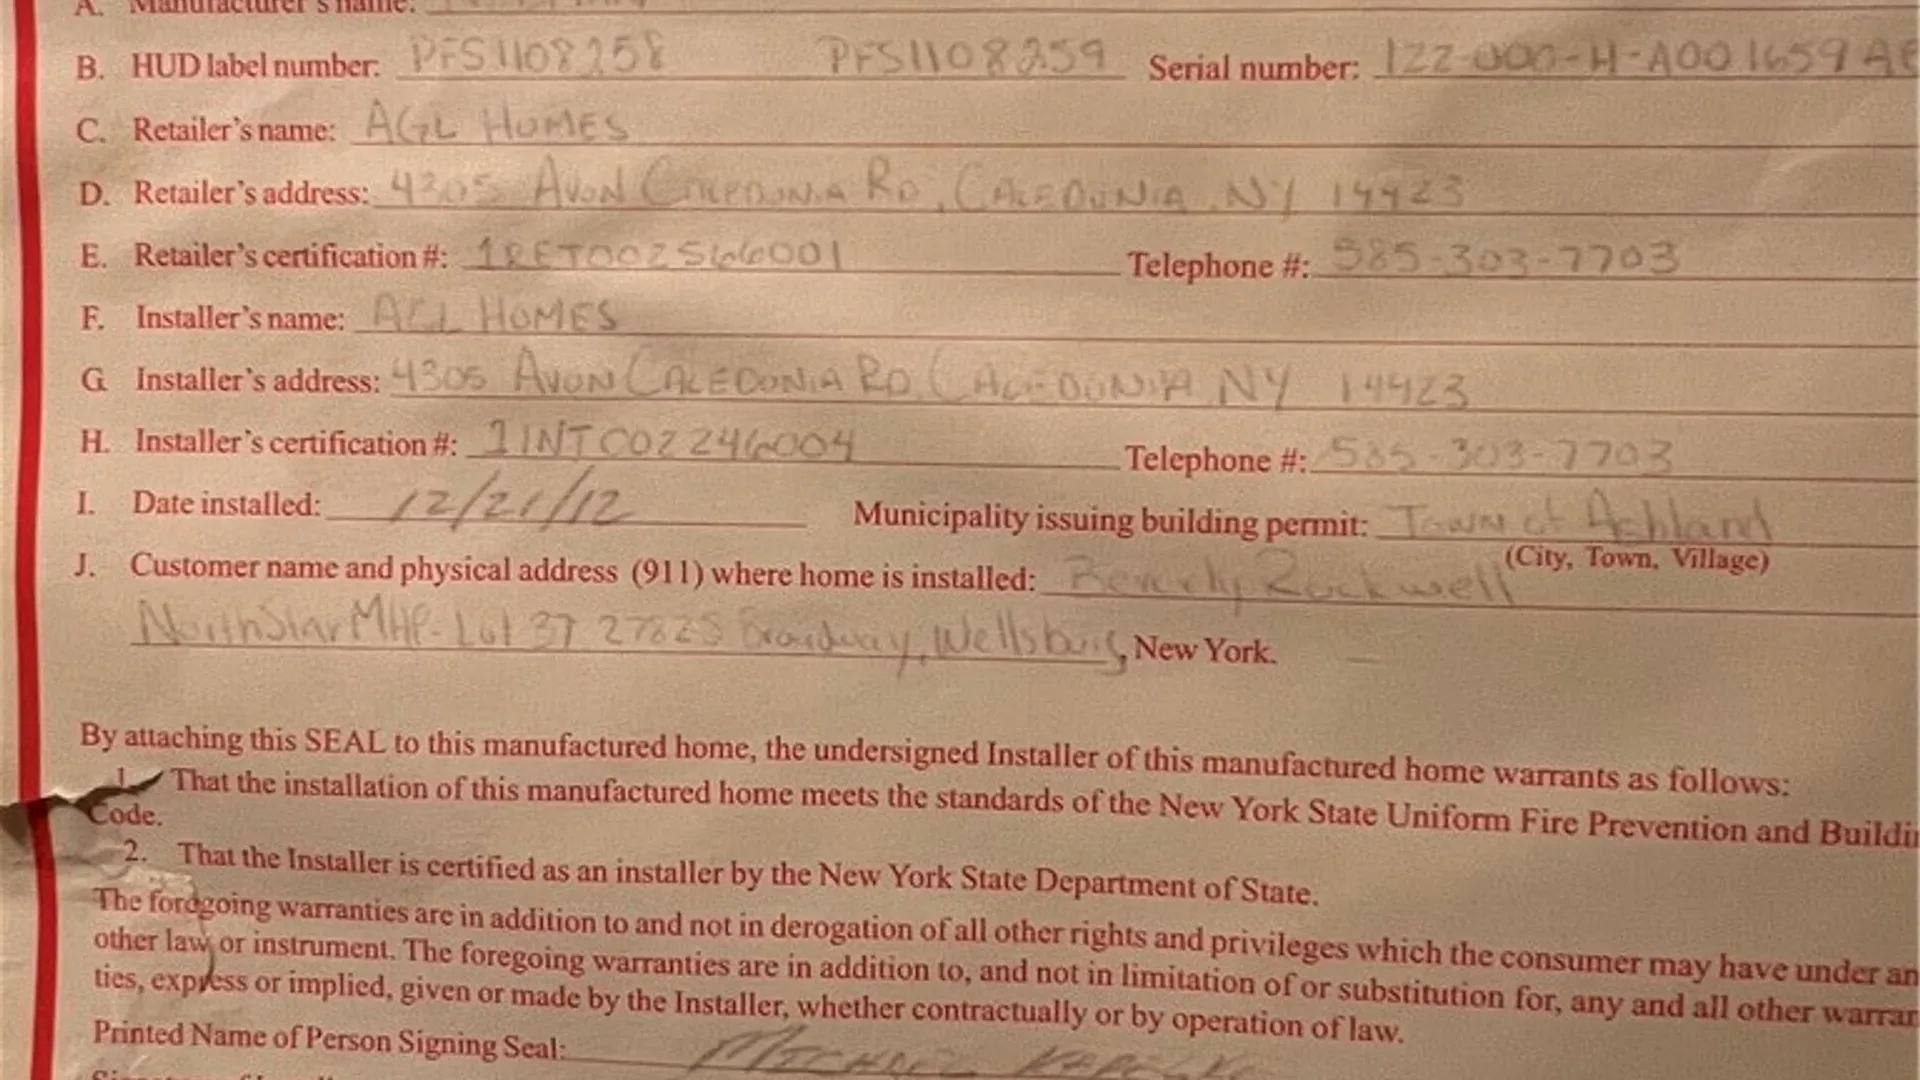 A. Manufacturer's name:
B. HUD label number: PFS1108258 PFS1108259 Serial number: 122-000-H-A001659 A
C. Retailer's name: AGL HOMES
D. Retailer's address: 4305 AVON CALEDONIA RD, CALEDONIA, NY 14423
E. Retailer's certification #: 1RET002566001 Telephone #: 585-303-7703
F. Installer's name: AGL HOMES
G Installer's address: 4305 AVON CALEDONIA RD, CALEDONIA NY 14423
H. Installer's certification #: 1INT002246004 Telephone #: 585-303-7703
I. Date installed: 12/21/12 Municipality issuing building permit: Town of Ashland
(City, Town, Village)
J. Customer name and physical address (911) where home is installed: Beverly Rockwell
NorthStar MHP- Lot 37 27825 Broadway, Wellsburg, New York.
By attaching this SEAL to this manufactured home, the undersigned Installer of this manufactured home warrants as follows:
1. That the installation of this manufactured home meets the standards of the New York State Uniform Fire Prevention and Buildin
Code.
2. That the Installer is certified as an installer by the New York State Department of State.
The foregoing warranties are in addition to and not in derogation of all other rights and privileges which the consumer may have under an
other law or instrument. The foregoing warranties are in addition to, and not in limitation of or substitution for, any and all other warran
ties, express or implied, given or made by the Installer, whether contractually or by operation of law.
Printed Name of Person Signing Seal: MICHAEL